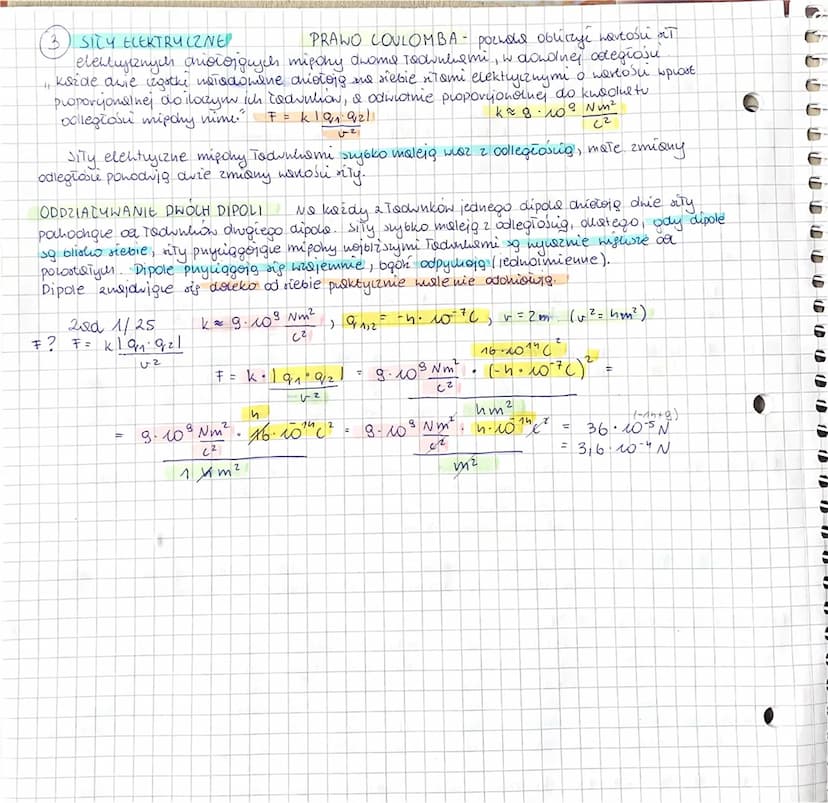 ③ SIŁY ELEKTRYCZNE PRAWO COULOMBA - pozwala obliczyć wartości sił
elektrycznych działających między dwoma ładunkami, w dowolnej odległości
„każde dwie cząstki naładowane działają na siebie siłami elektrycznymi o wartości wprost
proporcjonalnej do iloczynu ich ładunków, a odwrotnie proporcjonalnej do kwadratu
odległości między nimi." F = k |q₁·q₂| / r² k ≈ 9·10⁹ Nm²/C²
Siły elektryczne między ładunkami szybko maleją wraz z odległością, małe zmiany
odległości powodują duże zmiany wartości siły.
ODDZIAŁYWANIE DWÓCH DIPOLI Na każdy z ładunków jednego dipola działają dwie siły
pochodzące od ładunków drugiego dipola. Siły szybko maleją z odległością, dlatego, gdy dipole
są blisko siebie, siły przyciągające między najbliższymi ładunkami są wyłącznie większe od
pozostałych. Dipole przyciągają się wzajemnie, bądź odpychają (jednoimienne).
Dipole znajdujące się daleko od siebie praktycznie wcale nie oddziałują.
zad 1/25 k ≈ 9·10⁹ Nm²/C² , q₁,₂ = -4·10⁻⁷C, r = 2m (r² = 4m²)
F? F = k |q₁·q₂| / r²
16·10¹⁴C²
F = k·|q₁·q₂| / r² = 9·10⁹ Nm²/C² · (-4·10⁻⁷C)² / 4m² =
= 9·10⁹ Nm²/C² · 16·10⁻¹⁴C² / 4m² = 9·10⁹ Nm²/C² · 4·10⁻¹⁴C² / m² = 36·10⁻⁵N
4 1 (-14+9)
= 3,6·10⁻⁴N